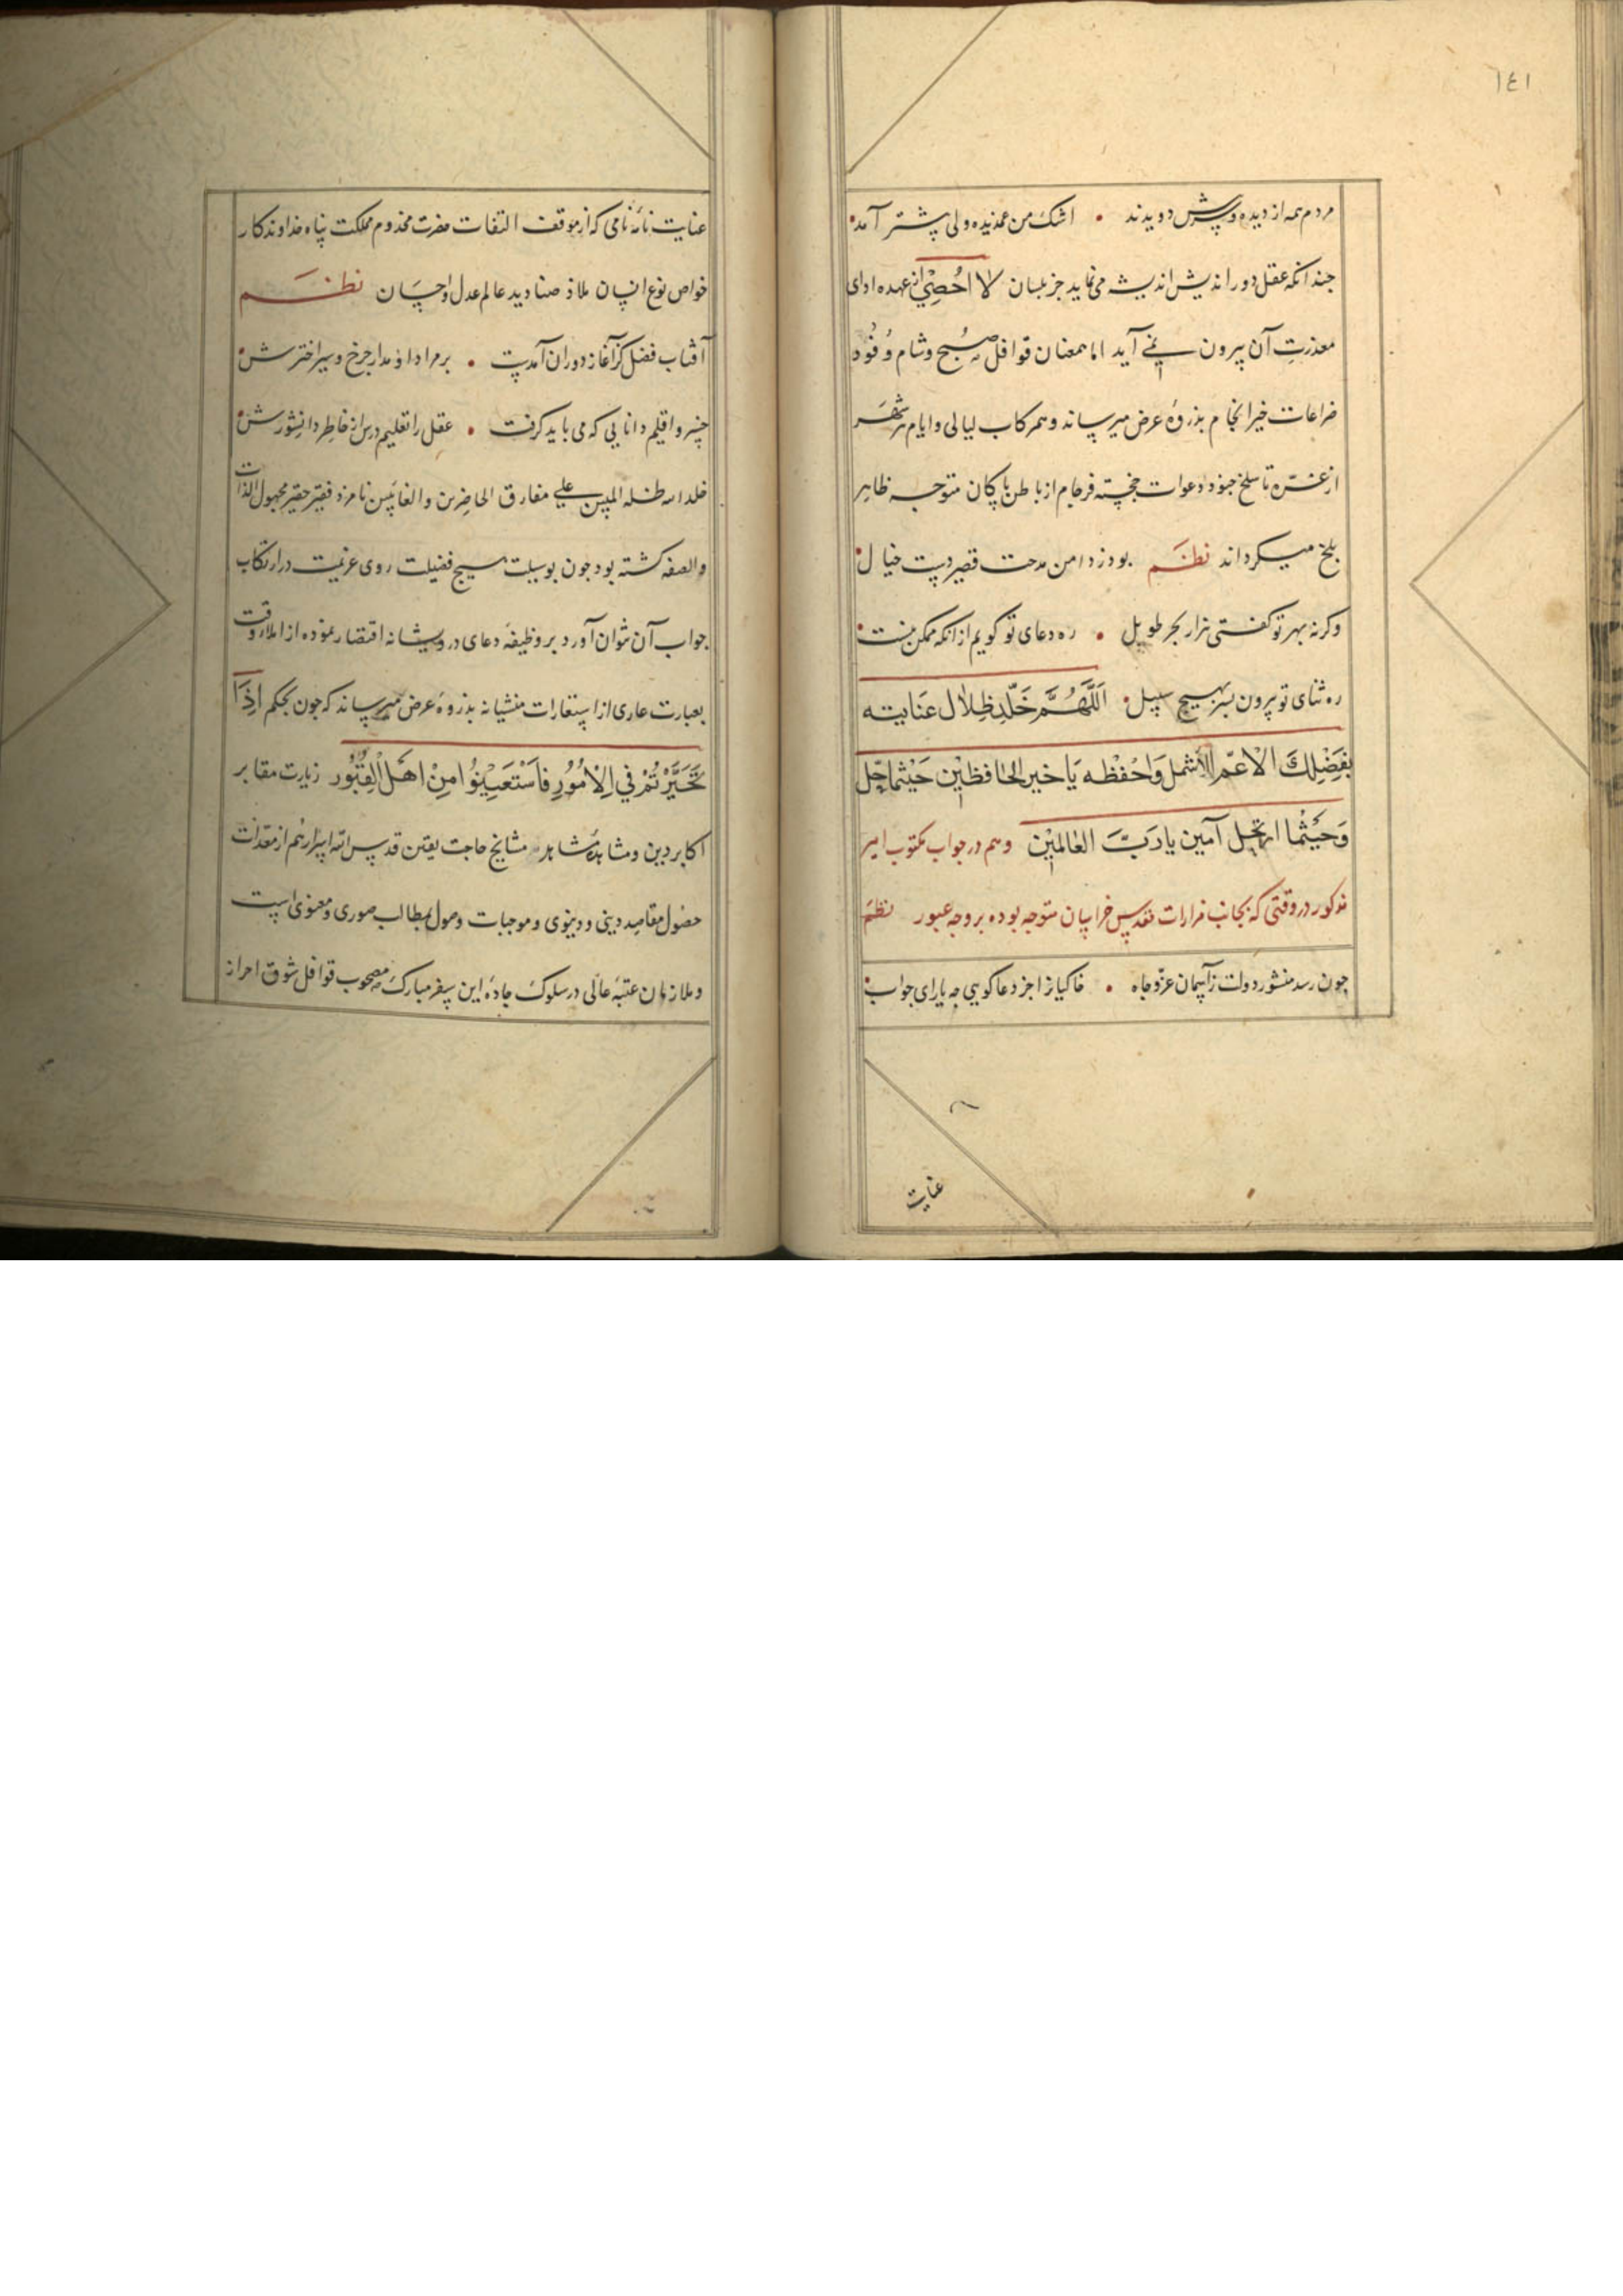 ١٤١
مردم همه از دیده و پیش دویدند • اشک من غمدیده ولی پیشتر آمد
جندانکه عقل دور اندیش اندیشه می نماید جز بلسان لا اُحْصِی از عهده ادای
معذرت آن بیرون نمی آید اما همعنان قوافل صبح و شام وُفُود
ضراعات خیر انجام بذروهٔ عرض میرساند و همرکاب لیالی و ایام هر شهر
از غره تا سلخ جنود دعوات خجسته فرجام از باطن پاکان متوجه ظاهر
بلخ میکرداند نظم بود ز دامن مدحت قصیر دست خیال
وکرنه بهر تو کفتی هزار بحر طویل • ره دعای تو کویم از انکه ممکن نیست
ره ثنای تو بیرون بسر بهیچ سبیل اَللّهُمَّ خَلِّد ظِلال عنایته
بفَضْلِكَ الاعمّ الأشمل وَاحْفظه یَا خیر الحافظین حَیْثما حَلّ
وَحَیْثما ارتحل آمین یا رَبَّ العالمیْن وهم در جواب مکتوب امیر
مذکور در وقتی که بجانب مزارات مقدس خراسان متوجه بوده بر وجه عبور نظم
چون رسد منشور دولت ز آسمان عزّ و جاه • خاکیانرا جز دعا کویی چه یارای جواب
عنایت
عنایت نامهٔ نامی که از موقف التفات حضرت مخدوم مملکت پناه خداوندکار
خواص نوع انسان ملاذ صنادید عالم عدل و احسان نظم
آفتاب فضل کز آغاز دوران آمدست • بر مراد او مدار جرخ و سیر اخترش
خسرو اقلیم دانایی که می باید کرفت • عقل را تعلیم درس از خاطر دانشورش
خلد الله ظله المبین علی مفارق الحاضرین والغائبین نامزد فقیر حقیر مجهول الذات
والصفه کشته بود جون بوسیلت هیچ فضیلت روی عزیمت در ارتکاب
جواب آن نتوان آورد بر وظیفهٔ دعای درویشانه اقتصار نموده از املاء وقت
بعبارت عاری از استعارات منشیانه بذروهٔ عرض میرساند که جون بحکم اِذَا
تَحَیَّرْتُمْ فی الاُمُورِ فَاسْتَعِینُوا مِنْ اَهْل القُبُور زیارت مقابر
اکابر دین و مشاهدهٔ مشاهد مشایخ حاجت یقین قدس الله اسرارهم از معدات
حصول مقاصد دینی و دنیوی و موجبات وصول بمطالب صوری و معنوی است
و ملازمان عتبهٔ عالی در سلوک جادهٔ این سفر مبارک مصحوب قوافل شوق احراز